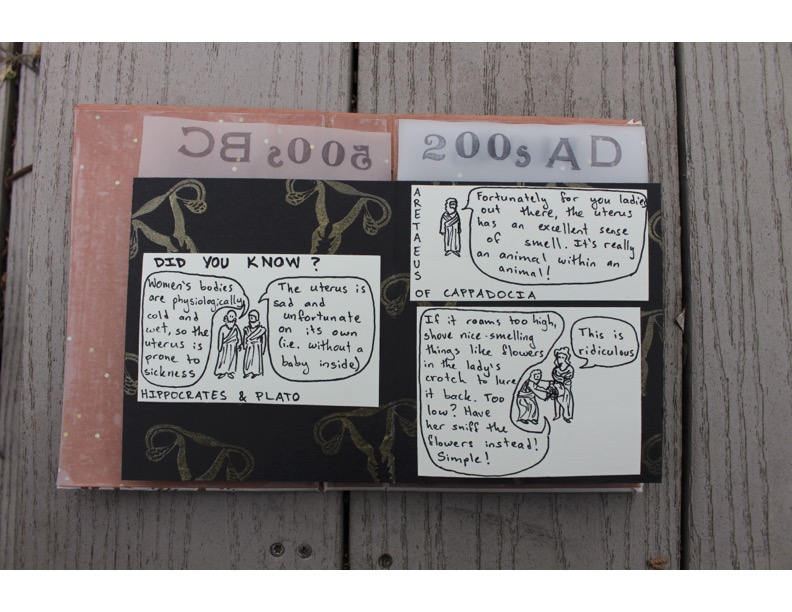 500s BC
200s AD
DID YOU KNOW?
Women's bodies
are physiologically
cold and
wet, so the
uterus is
prone to
sickness
The uterus is
sad and
unfortunate
on its own
(i.e. without a
baby inside)
HIPPOCRATES & PLATO
ARETAEUS
Fortunately for you ladies
out there, the uterus
has an excellent sense
of smell. It's really
an animal within an
animal!
OF CAPPADOCIA
If it roams too high,
shove nice-smelling
things like flowers
in the lady's
crotch to lure
it back. Too
low? Have
her sniff the
flowers instead!
Simple!
This is
ridiculous